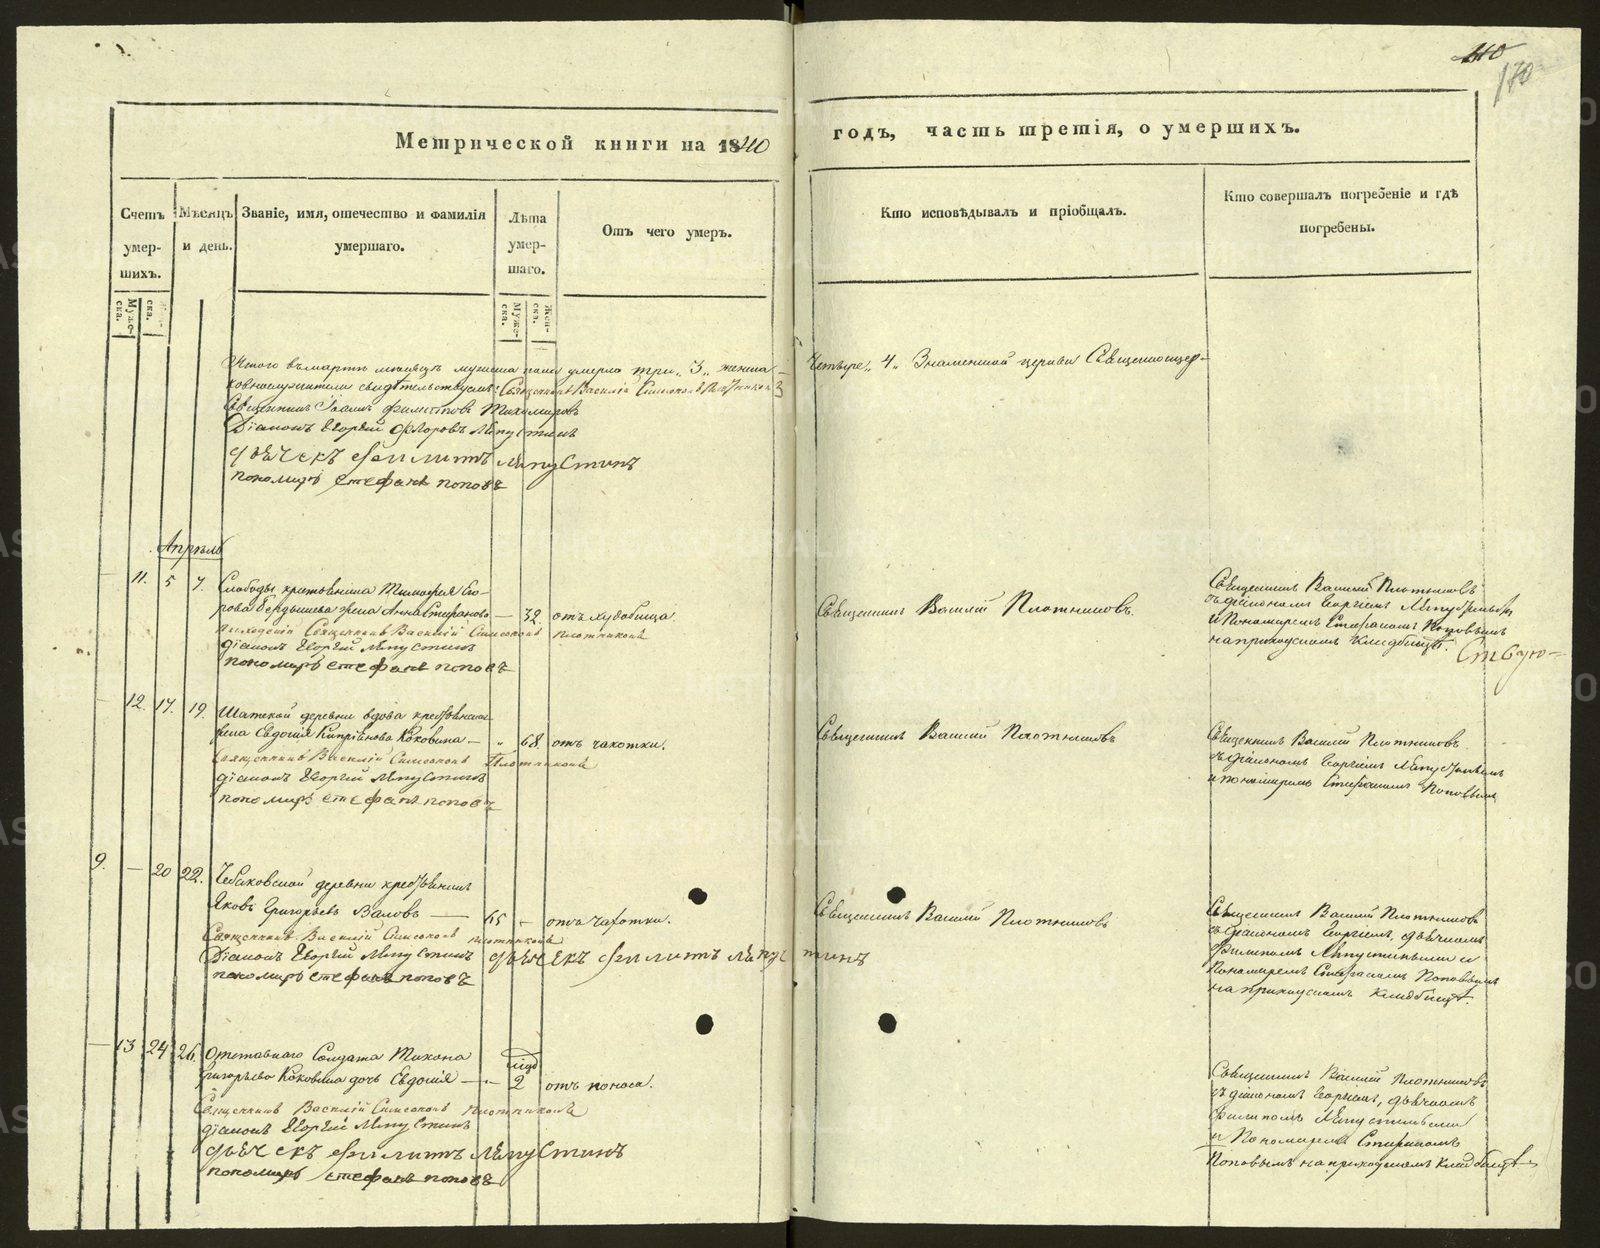 410
170
Метрической книги на 1840
годъ, часть третія, о умершихъ.
Счетъ умер-
шихъ.
Мѣсяцъ
и день.
Званіе, имя, отечество и фамилія
умершаго.
Лѣта
умер-
шаго.
Отъ чего умеръ.
Кто исповѣдывалъ и пріобщалъ.
Кто совершалъ погребеніе и гдѣ
погребены.
Муже-
ска.
Жен-
ска.
Муже-
ска.
Жен-
ска.
Итого въ мартѣ мѣсяцѣ мужеска пола умерло три „3„ женска
Четыре „4„ Знаменской церкви Священноцер-
ковнослужители свидѣтельствуемъ: Священникъ Василій Симеоновъ Плотниковъ
Священникъ Іоаннъ Тихомировъ
Діаконъ Георгій Флоровъ Ляпустинъ
дьячекъ филиппъ ляпустинъ
пономарь стефанъ поповъ
Апрѣль
11. 5 7. Слободы крестьянина Тимофея Его-
рова Бердышева жена Анна Стефанова — 32 отъ худобища
Священникъ Василій Симеоновъ Плотниковъ
діаконъ Георгій Ляпустинъ
пономарь стефанъ поповъ
Священникъ Василій Плотниковъ.
Священникъ Василій Плотниковъ
съ діакономъ Георгіемъ Ляпустинымъ
и Пономаремъ Стефаномъ Поповымъ
на приходскомъ кладбищѣ.
12. 17. 19. деревни вдова крестьянская
жена Евдокія Кипріянова Коковина — „ 68. отъ чахотки.
Священникъ Василій Симеоновъ Плотниковъ
діаконъ Георгій Ляпустинъ
пономарь стефанъ поповъ
Священникъ Василій Плотниковъ
Священникъ Василій Плотниковъ
съ діакономъ Георгіемъ Ляпустинымъ
и пономаремъ Стефаномъ Поповымъ
9. — 20 22. деревни крестьянинъ
Яковъ Григорьевъ Валовъ — 65 - отъ чахотки.
Священникъ Василій Симеоновъ Плотниковъ
Діаконъ Георгій Ляпустинъ дьячекъ филиппъ ляпустинъ
пономарь стефанъ поповъ
Священникъ Василій Плотниковъ
Священникъ Василій Плотниковъ
съ діакономъ Георгіемъ, дьячкомъ
Филипомъ Ляпустиными и
Пономаремъ Стефаномъ Поповымъ
на приходскомъ кладбищѣ.
— 13 24 26. Отставнаго Солдата Тихона
Григорьева Коковина дочь Евдокія — „ 2 отъ поноса.
Священникъ Василій Симеоновъ Плотниковъ
діаконъ Георгій Ляпустинъ
дьячекъ филиппъ ляпустинъ
пономарь стефанъ поповъ
Священникъ Василій Плотниковъ
съ діакономъ Георгіемъ, дьячкомъ
Филипомъ Ляпустиными
и Пономаремъ Стефаномъ
Поповымъ на приходскомъ кладбищѣ